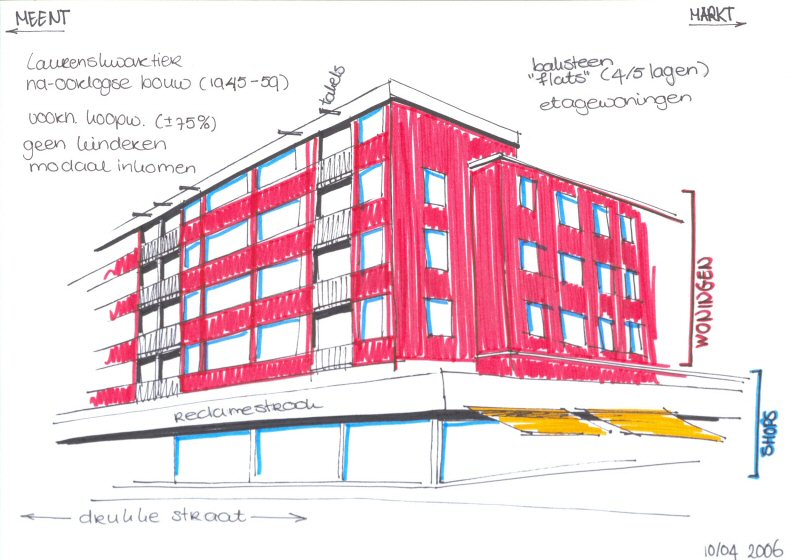 MEENT
MARKT
Laurenskwartier
na-oorlogse bouw (1945-59)
voorn. koopw. (±75%)
geen kinderen
modaal inkomen
takels
baksteen
"flats" (4/5 lagen)
etagewoningen
WONINGEN
reclamestrook
SHOPS
drukke straat
10/04 2006